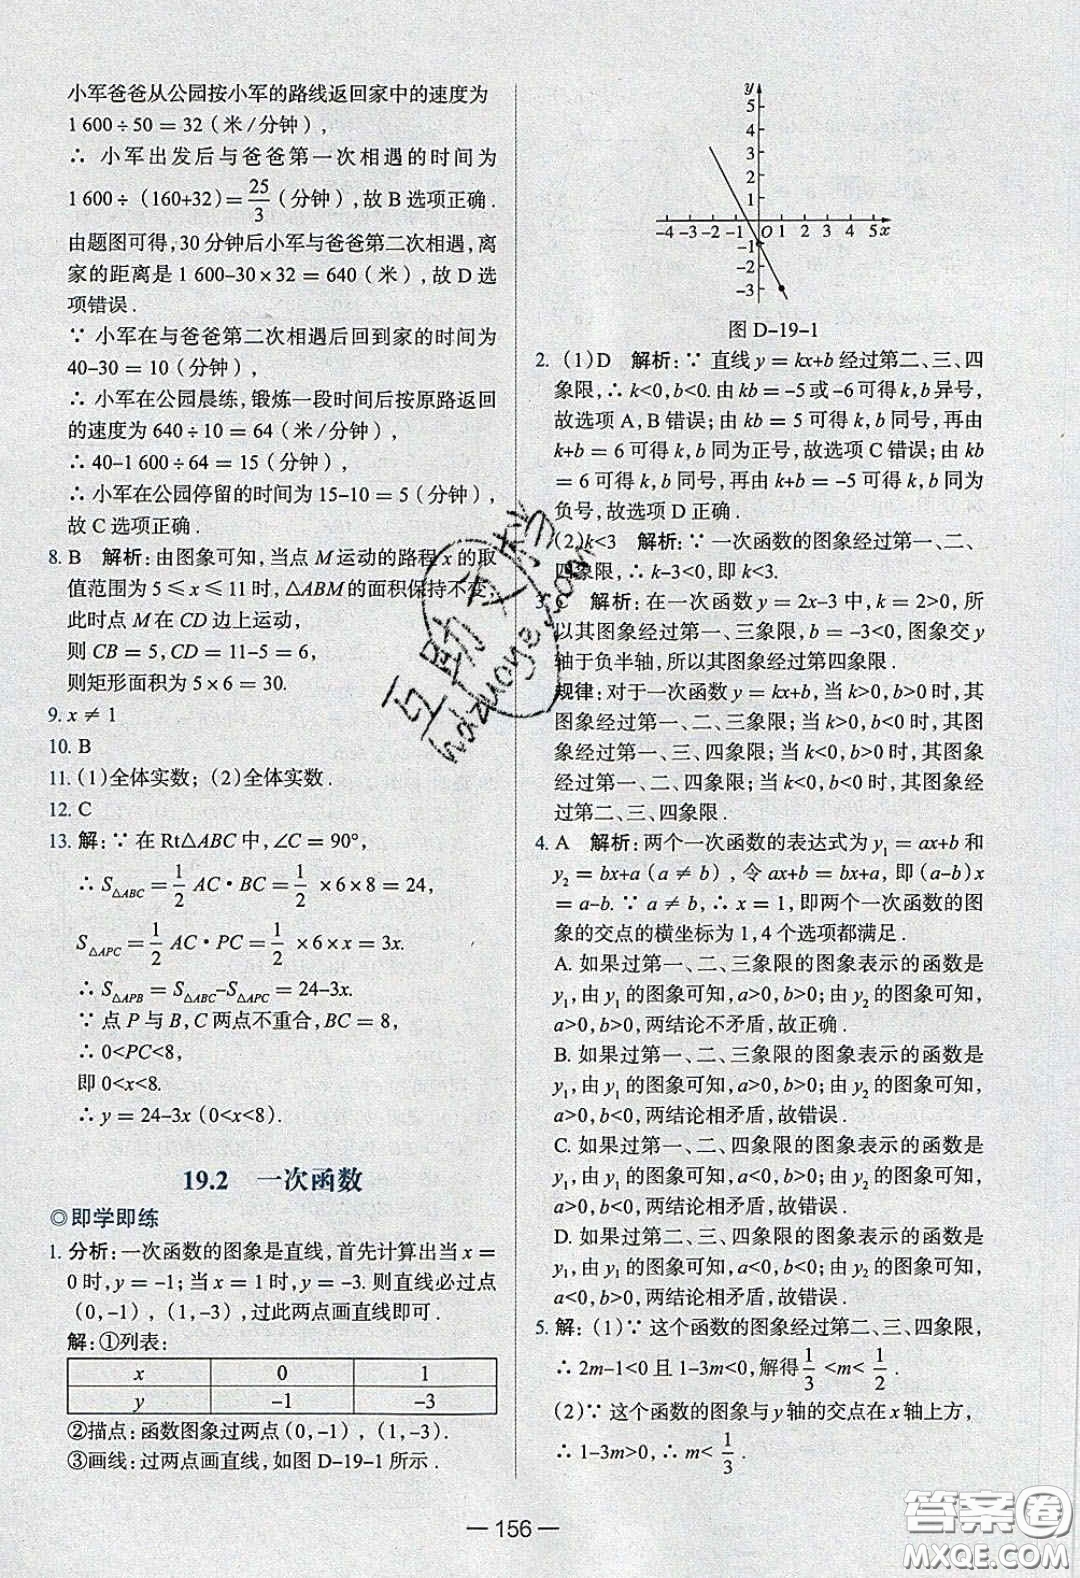 小军爸爸从公园按小军的路线返回家中的速度为
1 600÷50 = 32（米/分钟），
∴ 小军出发后与爸爸第一次相遇的时间为
1 600÷（160+32）= 25/3（分钟），故 B 选项正确.
由题图可得，30 分钟后小军与爸爸第二次相遇，离
家的距离是 1 600–30×32 = 640（米），故 D 选
项错误.
∵ 小军在与爸爸第二次相遇后回到家的时间为
40–30 = 10（分钟），
∴ 小军在公园晨练，锻炼一段时间后按原路返回
的速度为 640÷10 = 64（米/分钟），
∴ 40–1 600÷64 = 15（分钟），
∴ 小军在公园停留的时间为 15–10 = 5（分钟），
故 C 选项正确.
8. B 解析：由图象可知，当点 M 运动的路程 x 的取
值范围为 5 ≤ x ≤ 11 时，△ABM 的面积保持不变，
此时点 M 在 CD 边上运动，
则 CB = 5，CD = 11–5 = 6，
则矩形面积为 5×6 = 30.
9. x ≠ 1
10. B
11. (1)全体实数；(2)全体实数.
12. C
13. 解：∵ 在 Rt△ABC 中，∠C = 90°，
∴ S△ABC = 1/2 AC·BC = 1/2 ×6×8 = 24，
S△APC = 1/2 AC·PC = 1/2 ×6×x = 3x.
∴ S△APB = S△ABC–S△APC = 24–3x.
∵ 点 P 与 B，C 两点不重合，BC = 8，
∴ 0<PC<8，
即 0<x<8.
∴ y = 24–3x（0<x<8）.
19.2 一次函数
◎即学即练
1. 分析：一次函数的图象是直线，首先计算出当 x =
0 时，y = –1；当 x = 1 时，y = –3. 则直线必过点
（0，–1），（1，–3），过此两点画直线即可.
解：①列表：
x 0 1
y –1 –3
②描点：函数图象过两点（0，–1），（1，–3）.
③画线：过两点画直线，如图 D–19–1 所示.
y
5
4
3
2
1
–4 –3 –2 –1 O 1 2 3 4 5 x
–1
–2
–3
图 D–19–1
2. (1)D 解析：∵ 直线 y = kx+b 经过第二、三、四
象限，∴ k<0，b<0. 由 kb = –5 或 –6 可得 k，b 异号，
故选项 A，B 错误；由 kb = 5 可得 k，b 同号，再由
k+b = 6 可得 k，b 同为正号，故选项 C 错误；由 kb
= 6 可得 k，b 同号，再由 k+b = –5 可得 k，b 同为
负号，故选项 D 正确.
(2)k<3 解析：∵ 一次函数的图象经过第一、二、
四象限，∴ k–3<0，即 k<3.
3. C 解析：在一次函数 y = 2x–3 中，k = 2>0，所
以其图象经过第一、三象限，b = –3<0，图象交 y
轴于负半轴，所以其图象经过第四象限.
规律：对于一次函数 y = kx+b，当 k>0，b>0 时，其
图象经过第一、二、三象限；当 k>0，b<0 时，其图
象经过第一、三、四象限；当 k<0，b>0 时，其图象
经过第一、二、四象限；当 k<0，b<0 时，其图象经
过第二、三、四象限.
4. A 解析：两个一次函数的表达式为 y₁ = ax+b 和
y₂ = bx+a（a ≠ b），令 ax+b = bx+a，即（a–b）x
= a–b. ∵ a ≠ b，∴ x = 1，即两个一次函数的图
象的交点的横坐标为 1，4 个选项都满足.
A. 如果过第一、二、三象限的图象表示的函数是
y₁，由 y₁ 的图象可知，a>0，b>0；由 y₂ 的图象可知，
a>0，b>0，两结论不矛盾，故正确.
B. 如果过第一、二、三象限的图象表示的函数是
y₁，由 y₁ 的图象可知，a>0，b>0；由 y₂ 的图象可知，
a>0，b<0，两结论相矛盾，故错误.
C. 如果过第一、二、四象限的图象表示的函数是
y₁，由 y₁ 的图象可知，a<0，b>0；由 y₂ 的图象可知，
a>0，b>0，两结论相矛盾，故错误.
D. 如果过第二、三、四象限的图象表示的函数是
y₁，由 y₁ 的图象可知，a<0，b<0；由 y₂ 的图象可知，
a<0，b>0，两结论相矛盾，故错误.
5. 解：(1)∵ 这个函数的图象经过第二、三、四象限，
∴ 2m–1<0 且 1–3m<0，解得 1/3 <m< 1/2 .
(2)∵ 这个函数的图象与 y 轴的交点在 x 轴上方，
∴ 1–3m>0，∴ m< 1/3 .
— 156 —
互助文档
hdzuoye.com
答案圈
MXQE.COM